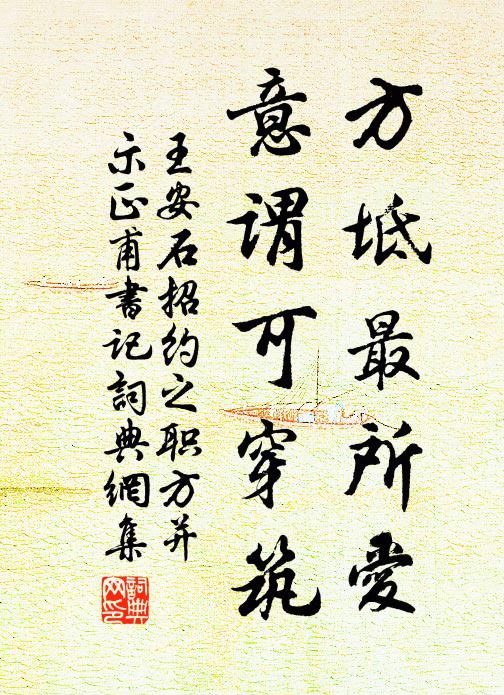 方坻最所愛
意谓可穿筑
王安石招约之职方并
示正甫書记詞典網集
詞典网印